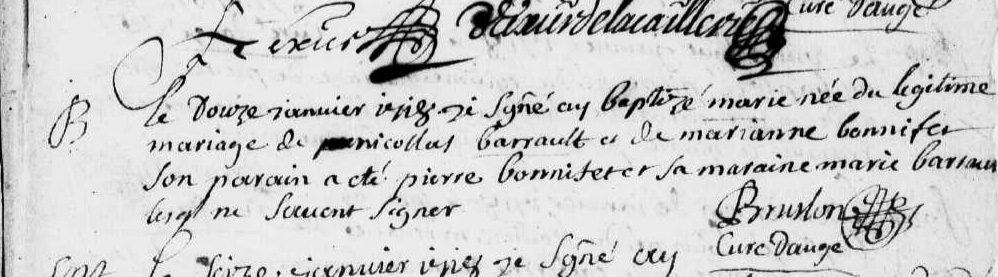 cure dauge
B
le douze janvier je sgné ay baptizé marie née du legitime
mariage de nicollas barrault et de marianne bonnifet
son parain a eté pierre bonnifet et sa maraine marie barraut
lesq ne scavent signer
Bruslon
Cure dauge
le seize janvier je sgné ay